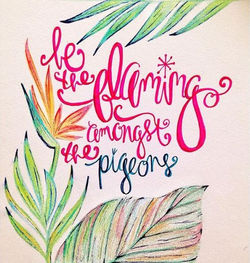 be
the flamingo
amongst
the pigeons